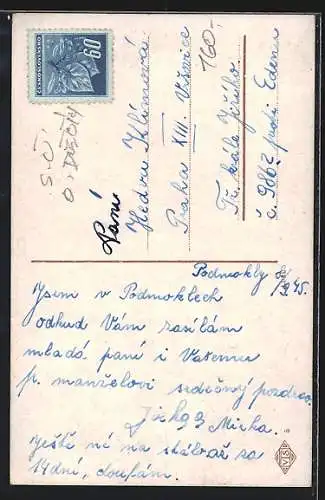 60
ČESKOSLOVENSKO
160-
Paní
Hedva Klímová
Praha XIII. Vršovice
Tř. krále Jiřího
č. 986 Eden
Podmokly 45.
Jsem v Podmoklech
odkud Vám zasílám
mladá paní i Vašemu
p. manželovi srdečný pozdrav
Mirka.
Ještě ne na shledanou za
14 dní, doufám.